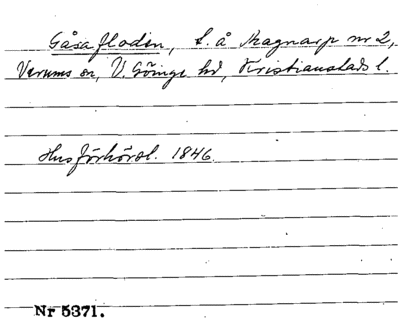 Gåsafloden, t. å Magnarp nr 2,
Verums sn, V. Göinge hd, Kristianstads l.
Husförhörsl. 1846.
Nr 5371.